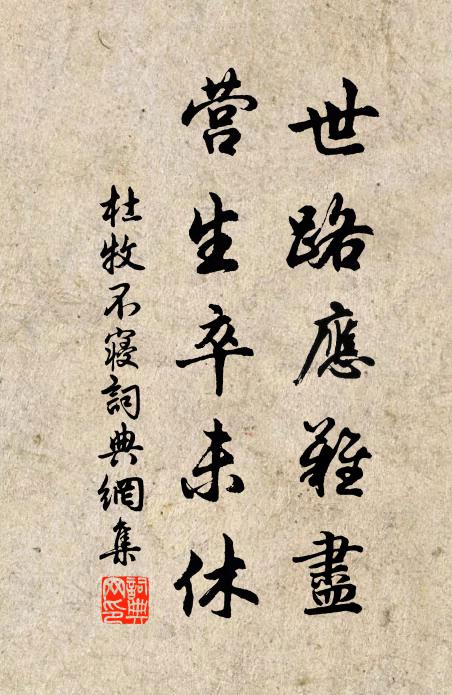 世路應難盡
营生卒未休
杜牧不寢詞典網集
詞典网印